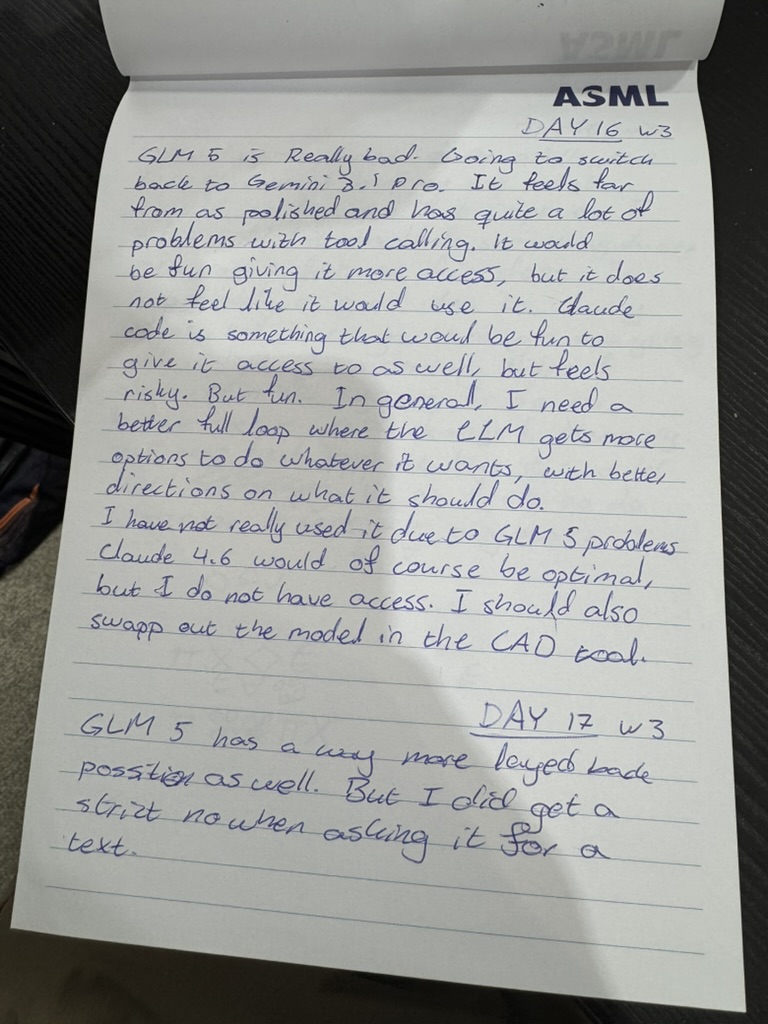 ASML
DAY 16 w3
GLM 5 is Really bad. Going to switch
back to Gemini 3.1 pro. It feels far
from as polished and has quite a lot of
problems with tool calling. It would
be fun giving it more access, but it does
not feel like it would use it. Claude
code is something that woud be fun to
give it access to as well, but feels
risky. But fun. In general, I need a
better full loop where the LLM gets more
options to do whatever it wants, with better
directions on what it should do.
I have not really used it due to GLM 5 problems
Claude 4.6 would of course be optimal,
but I do not have access. I should also
swapp out the model in the CAD tool.
DAY 17 w3
GLM 5 has a way more layed back
possition as well. But I did get a
strict no when asking it for a
text.